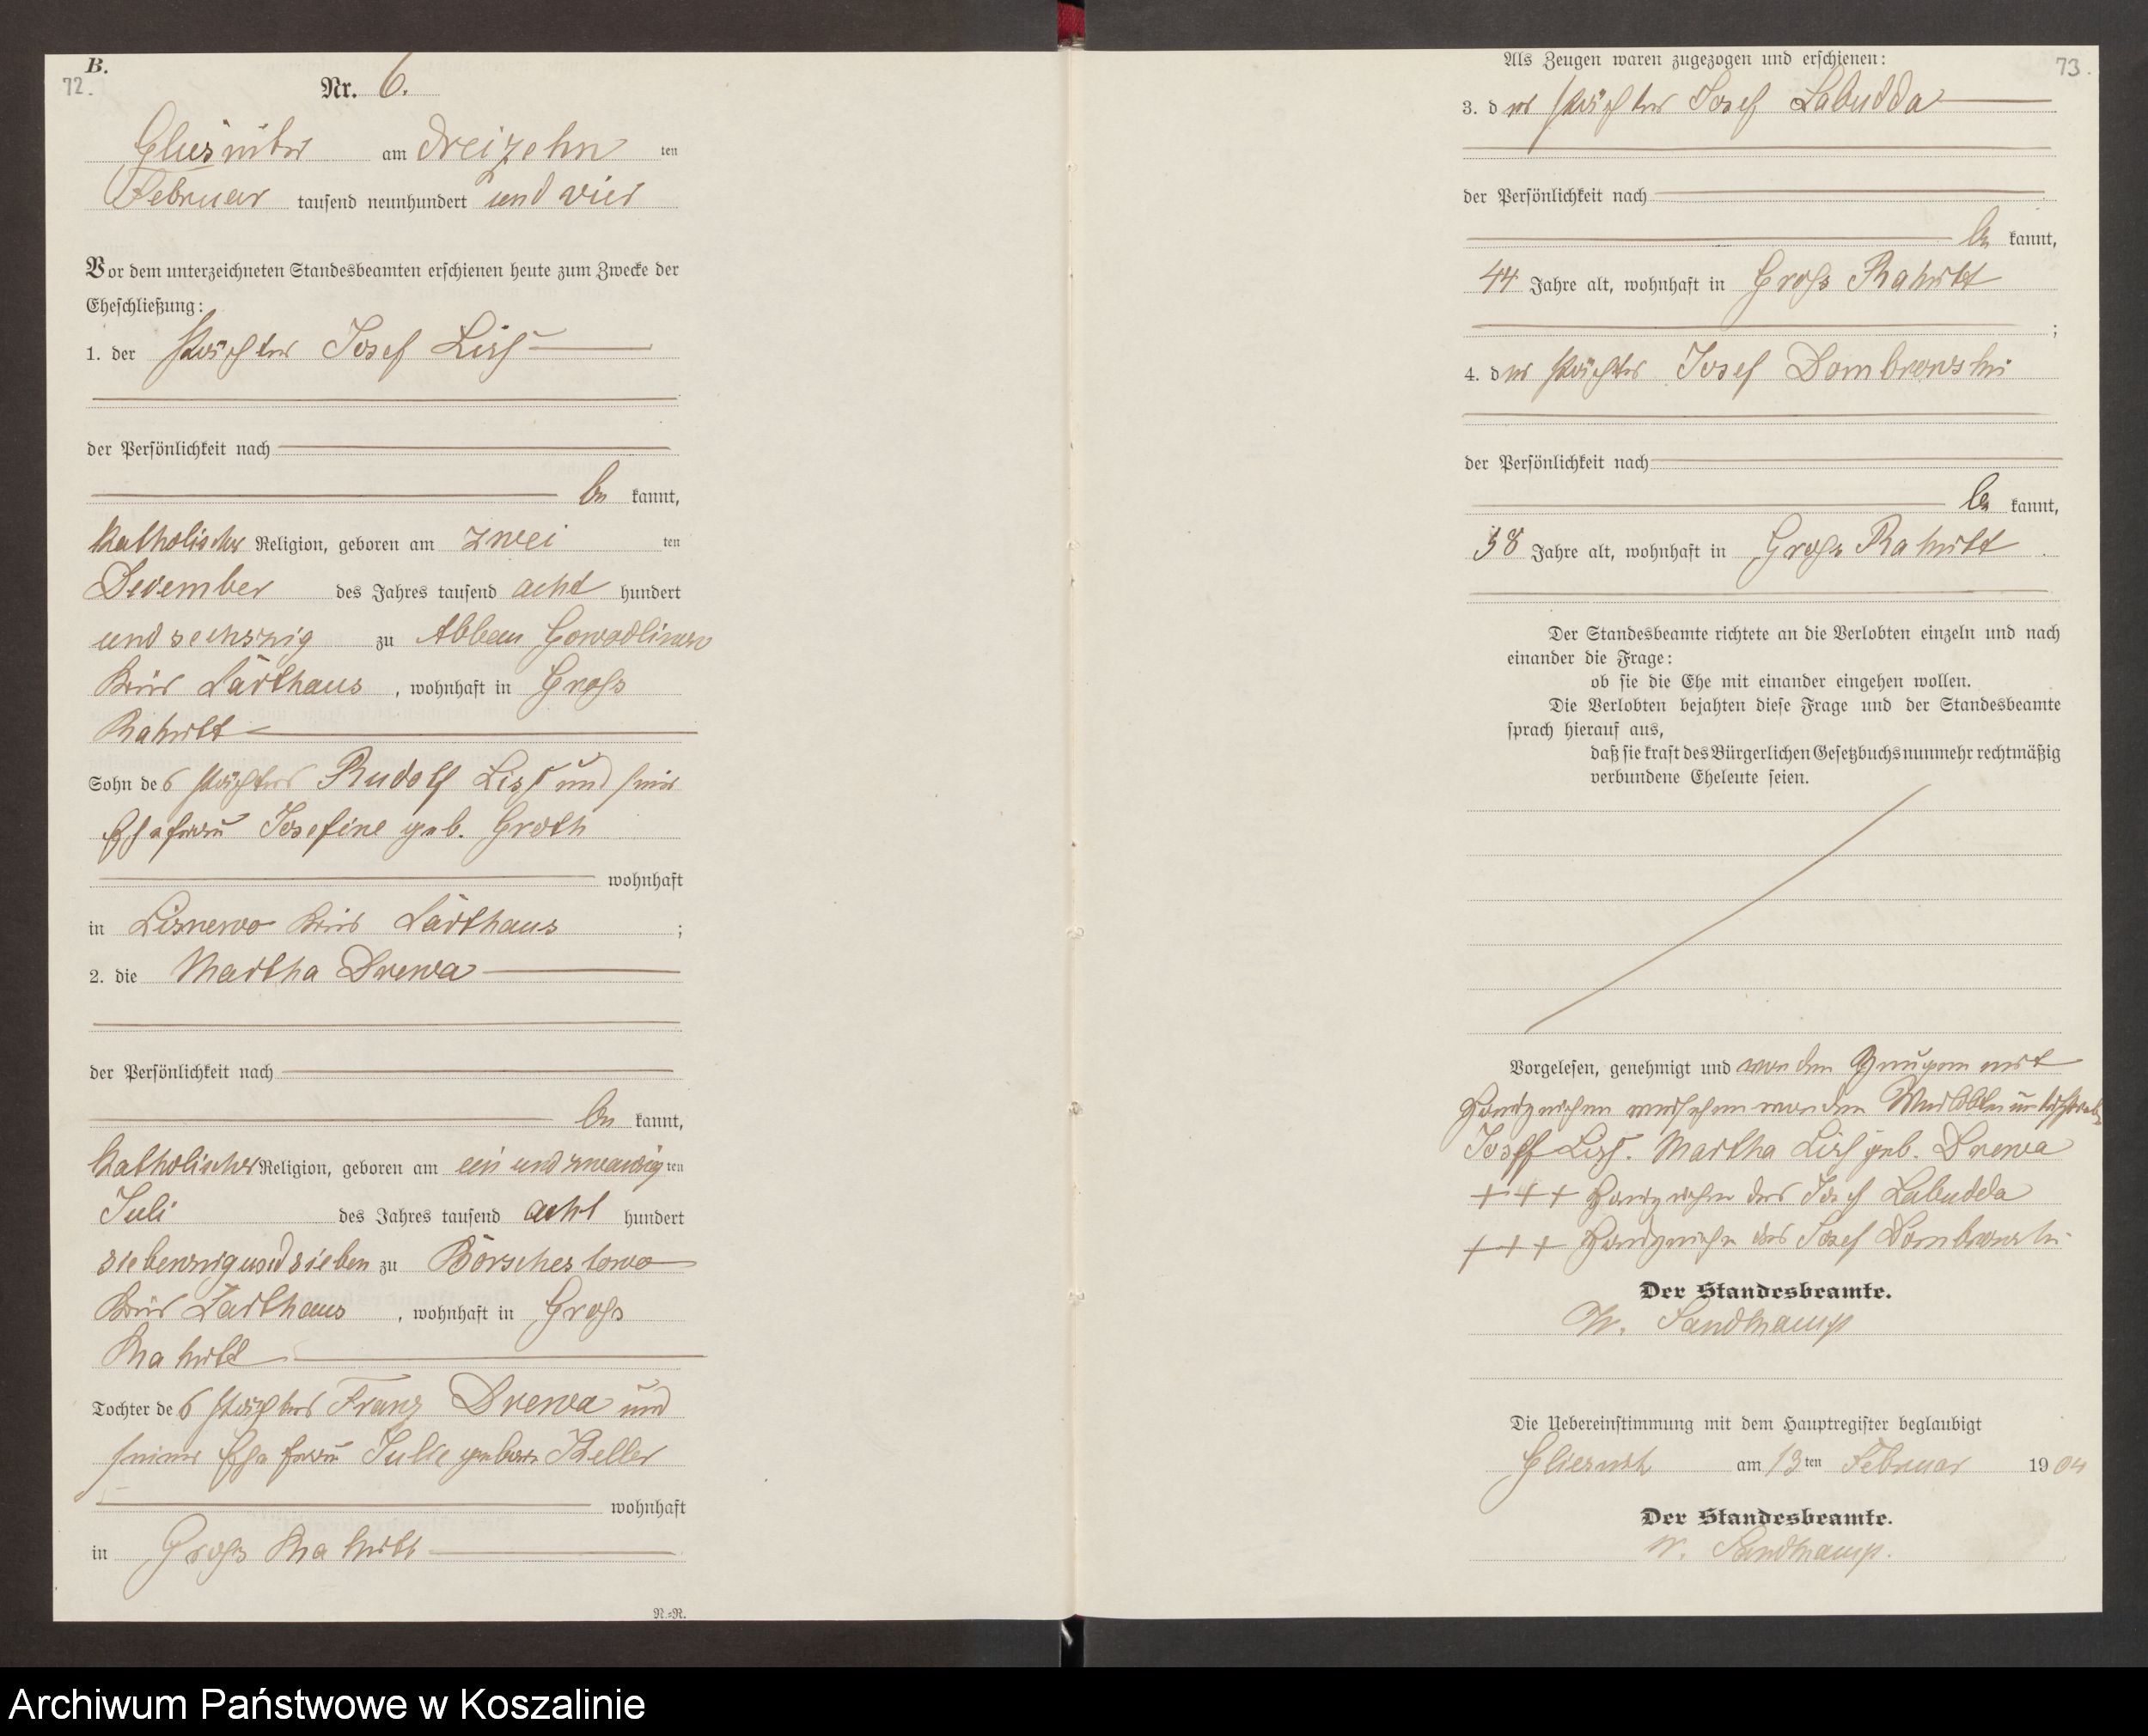 B.
72.
Nr. 6.
am dreizehn ten
Februar tausend neunhundert und vier
Vor dem unterzeichneten Standesbeamten erschienen heute zum Zwecke der
Eheschließung:
1. der Pächter Josef Liss
der Persönlichkeit nach
be kannt,
katholischer Religion, geboren am zwei ten
Dezember des Jahres tausend acht hundert
und sechszig zu Abbau
Kreis Carthaus, wohnhaft in Gross
Rakitt
Sohn des Pächters Rudolf Liss und seiner
Ehefrau Josefine geb. Groth
wohnhaft
in Lisnewo Kreis Carthaus ;
2. die Martha Drewa
der Persönlichkeit nach
be kannt,
katholischer Religion, geboren am ein und zwanzig ten
Juli des Jahres tausend acht hundert
siebenzig und sieben zu Borschestowo
Kreis Carthaus, wohnhaft in Gross
Rakitt
Tochter des Pächters Franz Drewa und
seiner Ehefrau Julie geboren Keller
wohnhaft
in Gross Rakitt
N.=N.
Als Zeugen waren zugezogen und erschienen:
73.
3. der Pächter Josef Labudda
der Persönlichkeit nach
be kannt,
44 Jahre alt, wohnhaft in Gross Rakitt
;
4. der Pächter Josef Dombrowski
der Persönlichkeit nach
be kannt,
38 Jahre alt, wohnhaft in Gross Rakitt
Der Standesbeamte richtete an die Verlobten einzeln und nach
einander die Frage:
ob sie die Ehe mit einander eingehen wollen.
Die Verlobten bejahten diese Frage und der Standesbeamte
sprach hierauf aus,
daß sie kraft des Bürgerlichen Gesetzbuchs nunmehr rechtmäßig
verbundene Eheleute seien.
Vorgelesen, genehmigt und von den Zeugen mit
Handzeichen versehen von den
Josef Liss. Martha Liss geb. Drewa
+++ Handzeichen des Josef Labudda
+++ Handzeichen des Josef Dombrowski
Der Standesbeamte.
W. Sandkamp
Die Uebereinstimmung mit dem Hauptregister beglaubigt
am 13 ten Februar 1904
Der Standesbeamte.
W. Sandkamp.
Archiwum Państwowe w Koszalinie